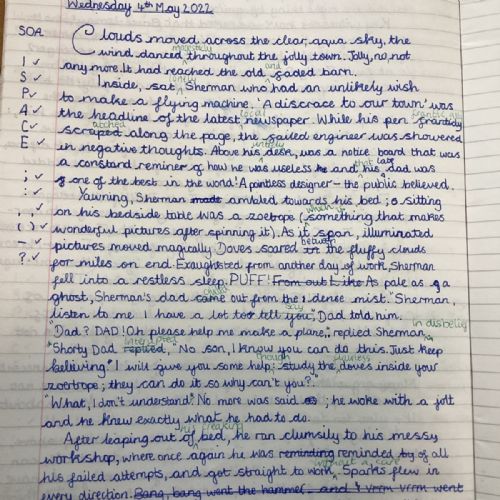 Wednesday 4th May 2022
SOA
Clouds moved across the clear, aqua sky, the
majesticly
wind danced throughout the jolly town. Jolly, no, not
I ✓ any more. It had reached the old and faded barn.
S ✓ Inside, sat lonely Sherman who had an unlikely wish
P ✓ to make a flying machine. 'A discrace to our town' was
A ✓ the headline of the latest local newspaper. While his pen frantically
C ✓ scraped along the page, the failed engineer was showered
E ✓ in negative thoughts. Above his desk, was a notice board that was
a constand reminer of how he was useless and that his late dad was
; ✓ one of the best in the world! A pointless designer - the public believed.
: ✓ Yawning, Sherman made ambled towards his bed ; sitting
, , ✓ on his bedside table was a zoetrope (something that makes
( ) ✓ wonderful pictures after spinning it). As it span, illuminated
- ✓ pictures moved magically. Doves soared between in the fluffy clouds
? ✓ for miles on end. Exaughsted from another day of work, Sherman
fell into a restless sleep. PUFF! From out Like As pale as a
ghost, Sherman's dad came out from the dense mist. "Sherman,
listen to me I have a lot too tell you," Dad told him.
say in disbelief
"Dad? DAD! Oh please help me make a plane," replied Sherman.
Shorty Dad replied, interrupted "No son, I know you can do this. Just keep
believing." I will give you some help: study the doves inside your
zoetrope; they can do it so why can't you?."
"What, I don't understand." No more was said ; he woke with a jolt
and he knew exactly what he had to do.
After leaping out of his creaking bed, he ran clumsily to his messy
workshop, where once again he was reminding reminded by of all
his failed attempts, and got straight to work without a care. Sparks flew in
every direction. Bang, bang went the hammer, and 4 vrrm vrrm went